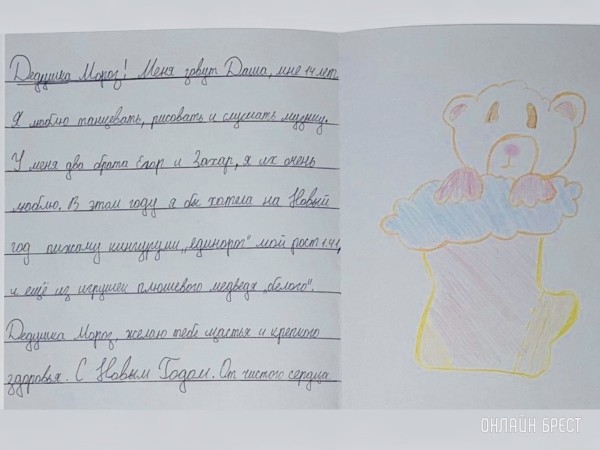 Дедушка Мороз! Меня зовут Даша, мне 14 лет.
Я люблю танцевать, рисовать и слушать музыку.
У меня два брата Егор и Захар, я их очень
люблю. В этом году я бы хотела на Новый
год пижаму кингуруми „единорог“ мой рост 1.41,
и ещё из игрушек плюшевого медведя „белого“.
Дедушка Мороз, желаю тебе счастья и крепкого
здоровья. С Новым Годом. От чистого сердца
ОНЛАЙН БРЕСТ